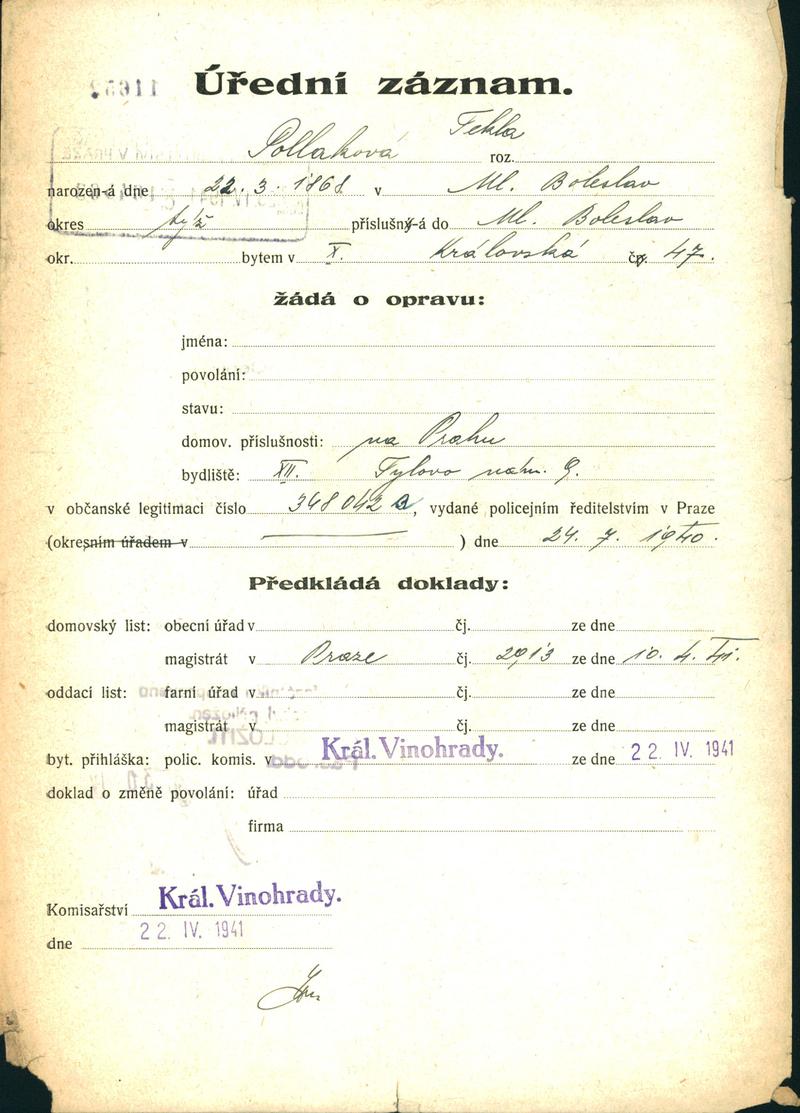 11652
Úřední záznam.
Pollaková Tekla roz.
narozen-á dne 22. 3. 1868 v Ml. Boleslav
okres týž příslušný-á do Ml. Boleslav
okr. bytem v X. Královská čp. 47.
žádá o opravu:
jména:
povolání:
stavu:
domov. příslušnosti: na Prahu
bydliště: XII. Tylovo nám. 9.
v občanské legitimaci číslo 348042 a, vydané policejním ředitelstvím v Praze
(okresním úřadem v ) dne 24. 7. 1940.
Předkládá doklady:
domovský list: obecní úřad v čj. ze dne
magistrát v Praze čj. 2913 ze dne 10. 4. 41.
oddací list: farní úřad v čj. ze dne
magistrát v čj. ze dne
byt. přihláška: polic. komis. v Král. Vinohrady. ze dne 22. IV. 1941
doklad o změně povolání: úřad
firma
Komisařství Král. Vinohrady.
dne 22. IV. 1941